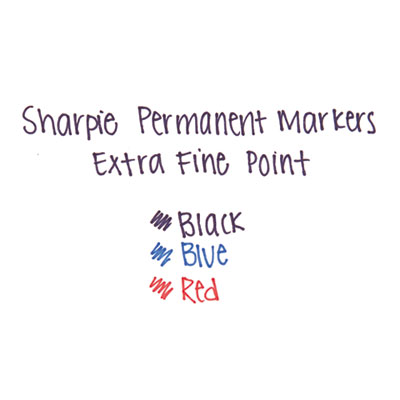 Sharpie Permanent Markers
Extra Fine Point
Black
Blue
Red